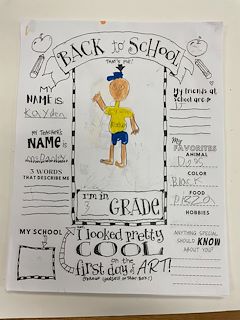 BACK to SCHOOL
THAT'S ME!
MY
NAME IS
Kayden
My friends at
school are
MY TEACHER'S
NAME IS
3 WORDS
THAT DESCRIBE ME
My
FAVORITES
ANIMAL
Dog
COLOR
Black
FOOD
PIZZA
HOBBIES
I'm in
3
GRADE
MY SCHOOL
I looked pretty
COOL
on the
first day of ART!
ANYTHING SPECIAL
SHOULD KNOW
ABOUT YOU?